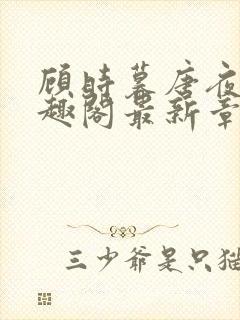 顾时暮唐夜
趣阁最新章
三少爷是只猫